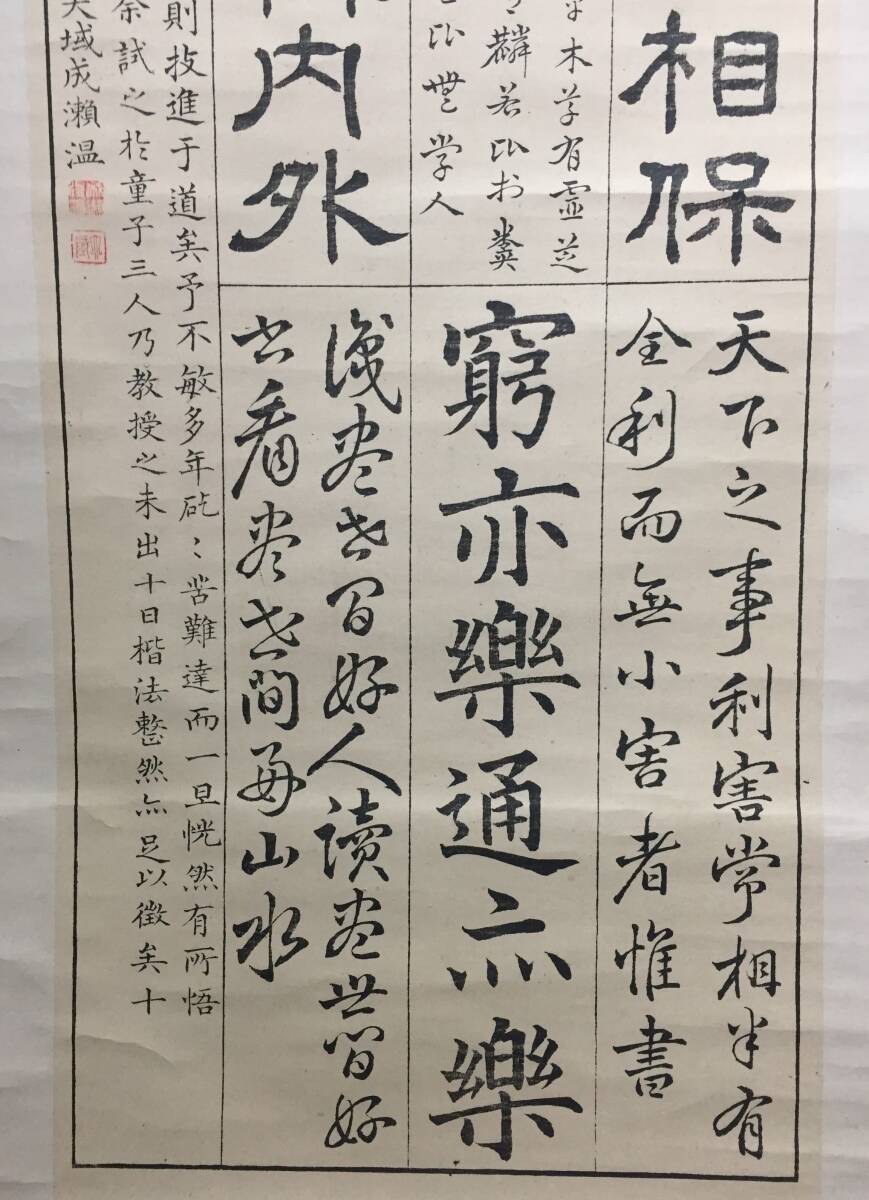 相保
木草有靈芝
麟若比於糞
比無学人
内外
天下之事利害常相半有
全利而無小害者惟書
窮亦樂通亦樂
識尽世間好人讀尽世間好
書看尽世間好山水
則技進于道矣予不敏多年矻々苦難達而一旦恍然有所悟
余試之於童子三人乃教授之未出十日楷法整然亦足以徵矣十
域成瀬温